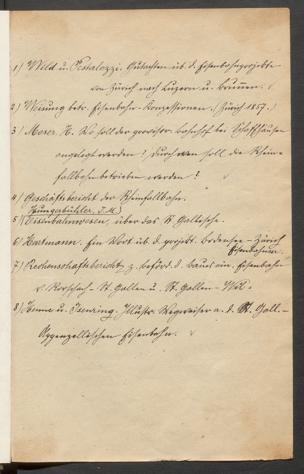 1) Wild u. Pestalozzi. Gutachten üb. d. Eisenbahnprojekte
von Zürich nach Luzern u. Brunnen.
2) Weisung betr. Eisenbahn-Konzessionen. (Zürich 1857.)
3) Moser, H. Wo soll der Bahnhof bei Schaffhausen
angelegt werden? Durch wen soll die Rhein-
fallbahn betrieben werden?
4) Geschäftsbericht der Rheinfallbahn.
(Hungerbühler, J. M.)
5) Eisenbahnwesen, über das St Gallische.
6) Hartmann. Ein Wort üb. d. projekt. Bodensee-Zürich
Eisenbahn.
7) Rechenschaftsbericht z. beförd. d. Baues ein. Eisenbahn
v. Rorschach-St. Gallen u. St. Gallen-Wil.
8) Henne u. Illustr. Wegweiser a. d. St. Gall.-
Appenzellischen Eisenbahn.